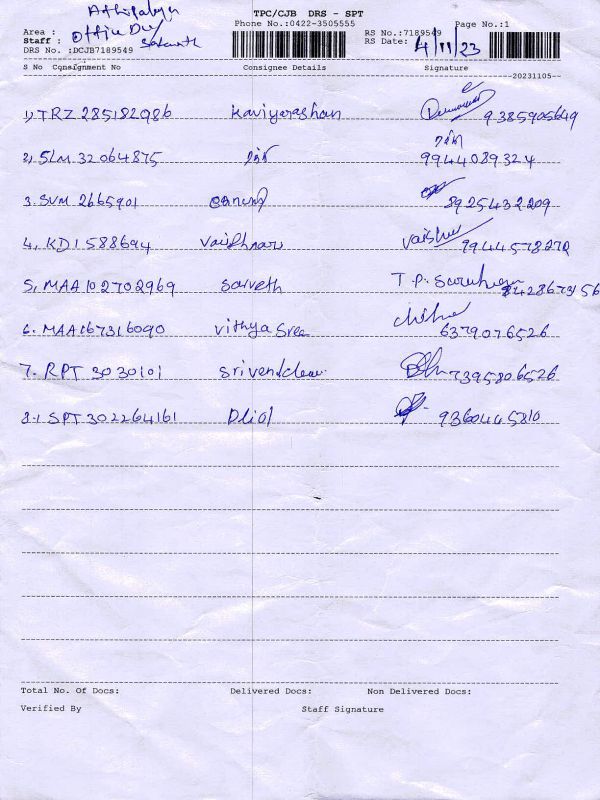 TPC/CJB DRS - SPT
Phone No.:0422-3505555
Page No.:1
Area :
Office Del
RS No.:7189549
Staff :
RS Date: 4/11/23
DRS No. :DCJB7189549
S No Cgnsignment No Consignee Details Signature
20231105
1, TRZ 285182986 Kaviyarashan 9385905649
2, SLM 32064875 9944089324
3. SVM 2665901 8925432209
4, KDI 588694 Vaishnavi Vaishnavi 9944578272
5, MAA 102702969 Sarveth T.P. 8428673156
6. MAA 167316090 Vithya Sree 6379076526
7. RPT 3030101 7395806526
8. SPT 302264161 9360445810
Total No. Of Docs: Delivered Docs: Non Delivered Docs:
Verified By Staff Signature